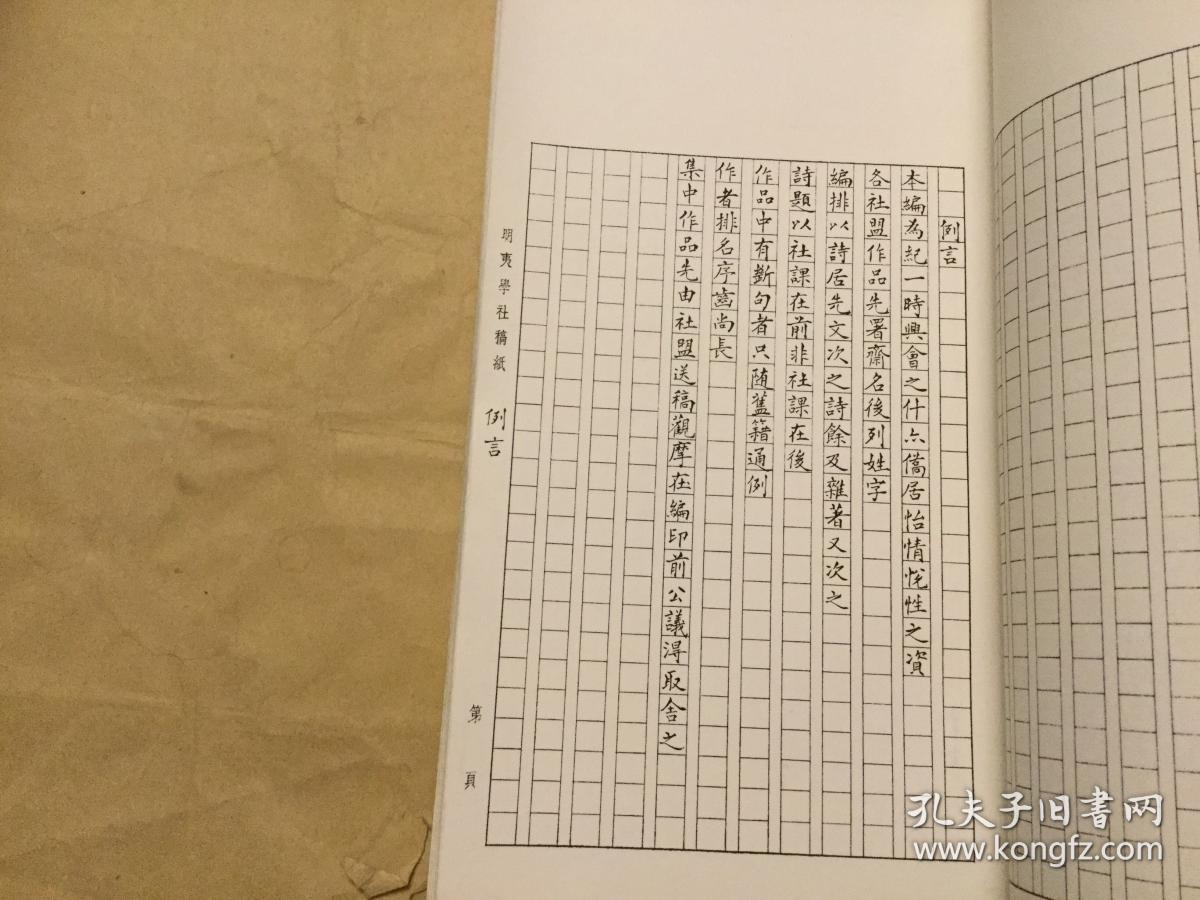 例言
本編為紀一時興會之什亦僑居怡情悅性之資
各社盟作品先署齋名後列姓字
編排以詩居先文次之詩餘及雜著又次之
詩題以社課在前非社課在後
作品中有斷句者只随舊籍通例
作者排名序齒尚長
集中作品先由社盟送稿觀摩在編印前公議得取舍之
明夷學社稿紙
例言
第 頁
孔夫子旧书网
www.kongfz.com